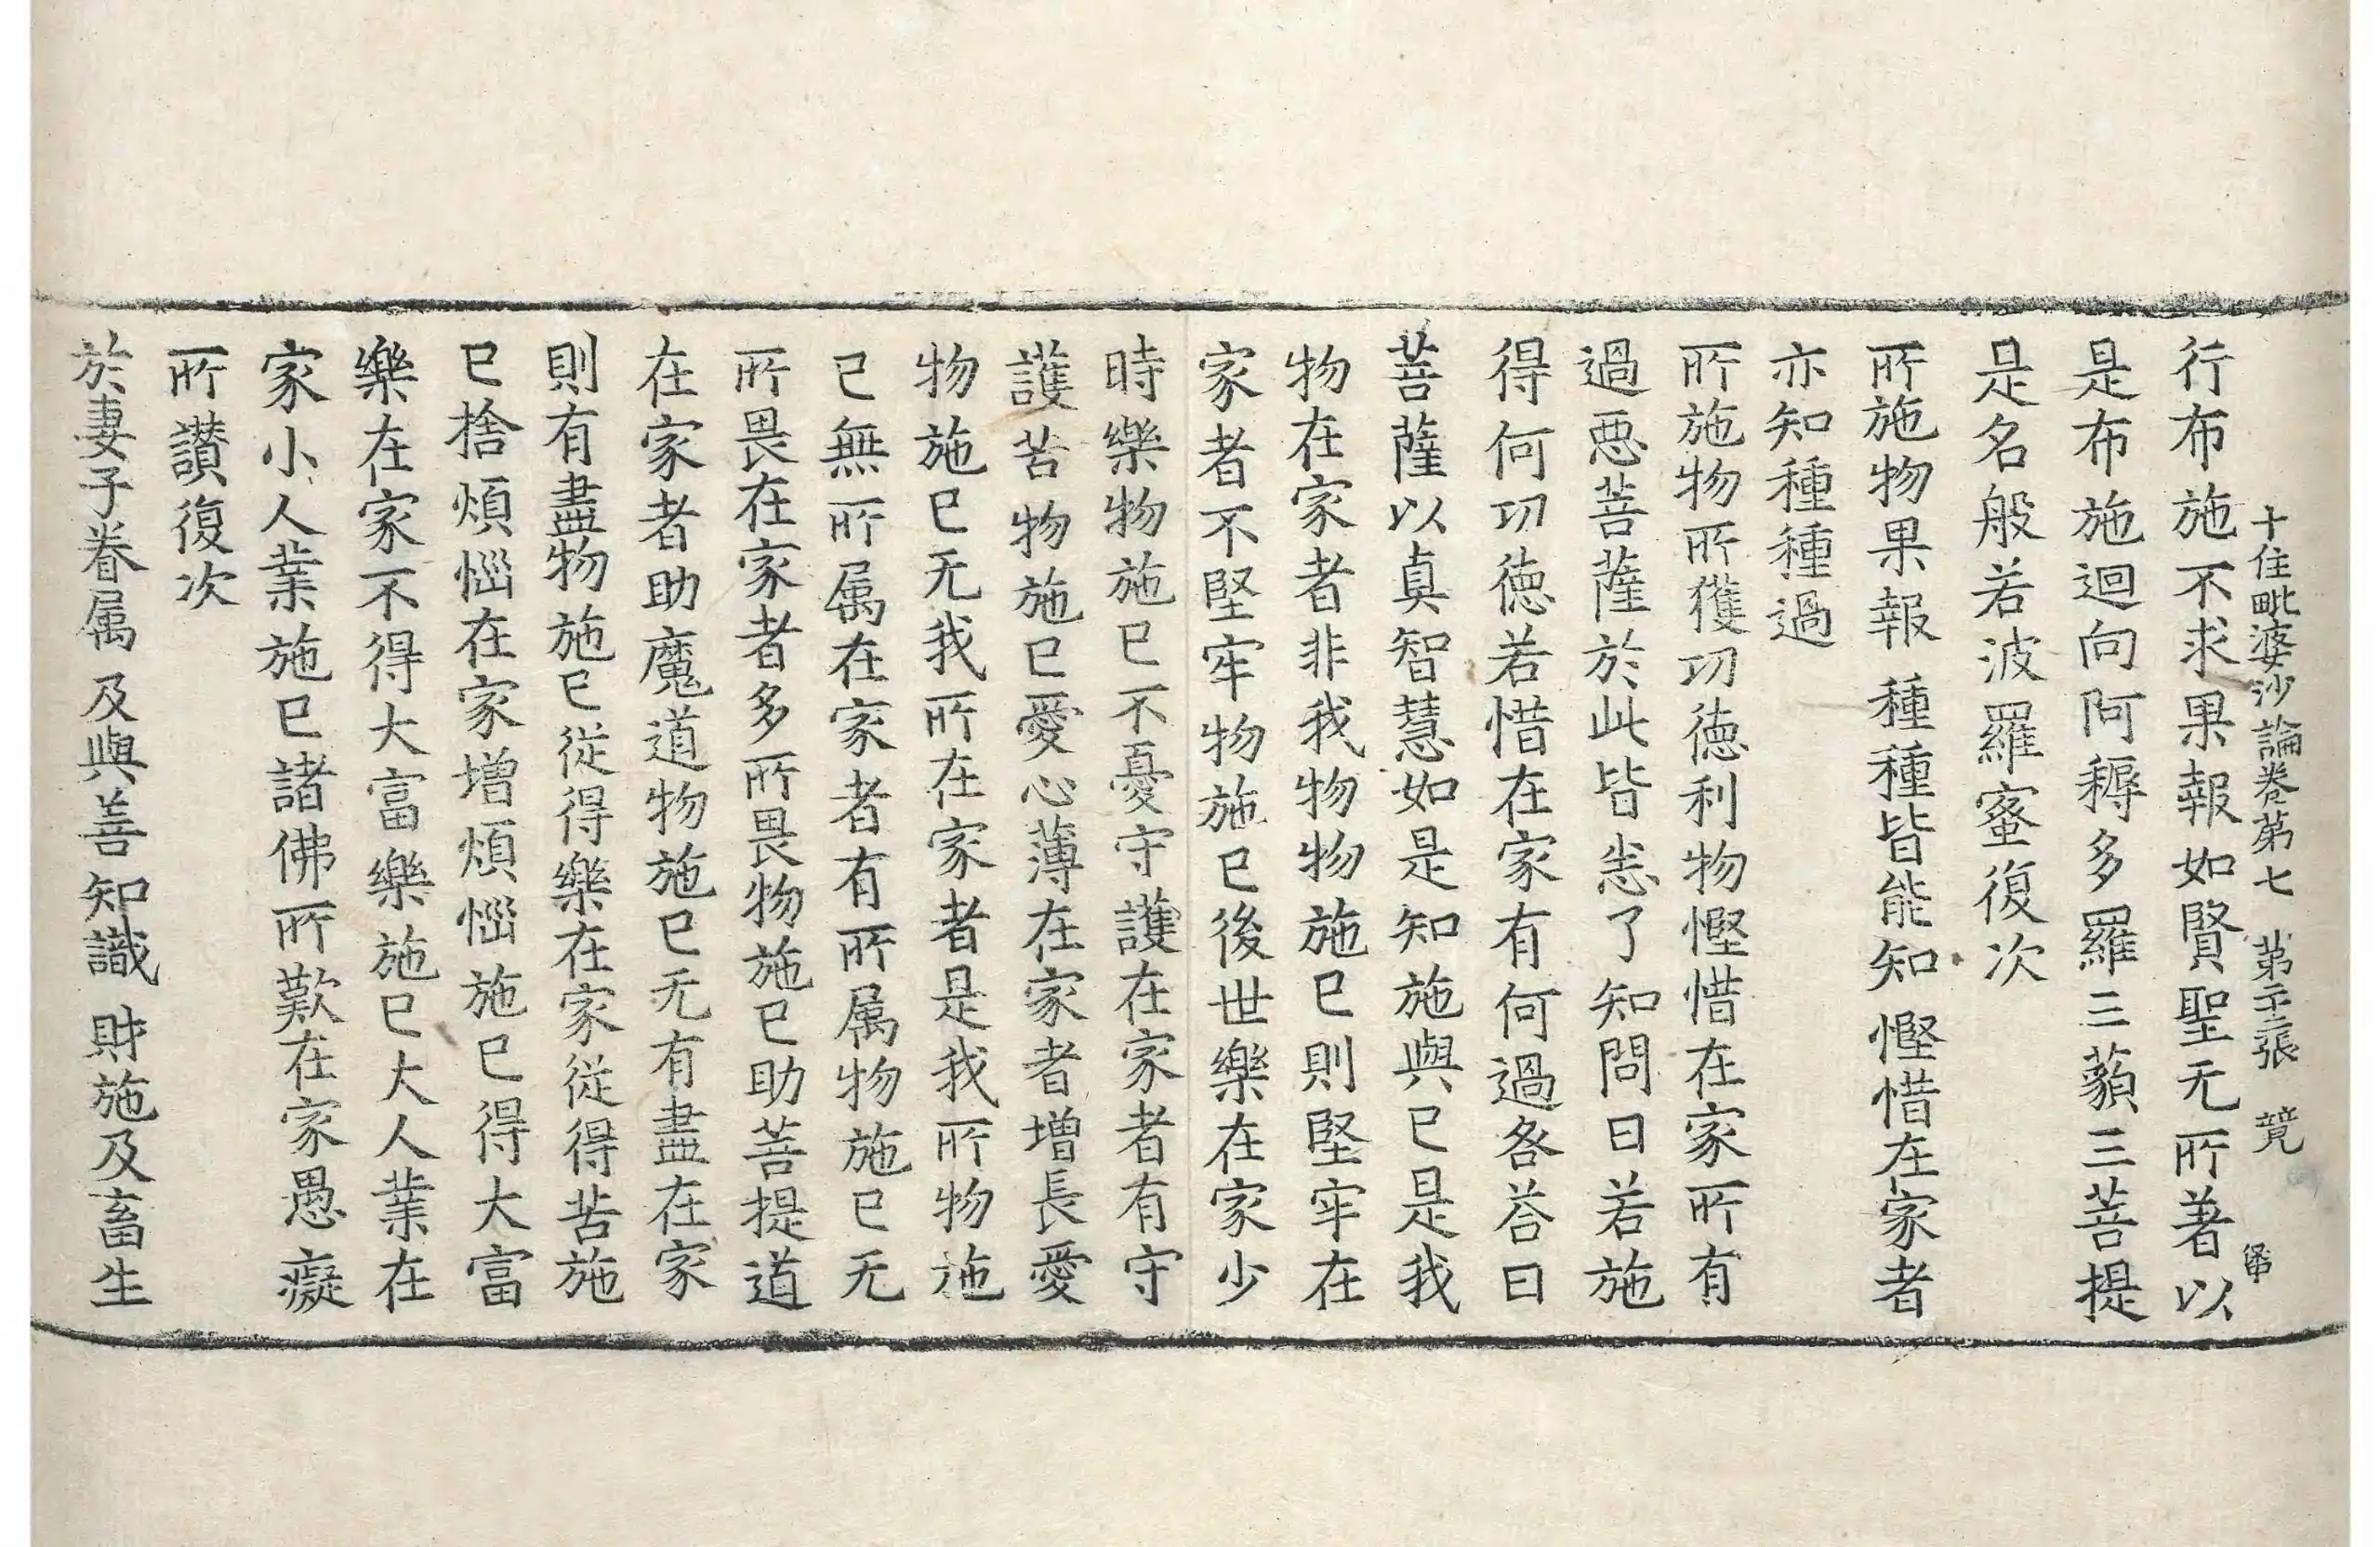 十住毗婆沙論卷第七　第二十二張　竟
行布施不求果報如賢聖无所著以
是布施迴向阿耨多羅三藐三菩提
是名般若波羅蜜復次
所施物果報種種皆能知慳惜在家者
亦知種種過
所施物所獲功德利物慳惜在家所有
過惡菩薩於此皆悉了知問曰若施
得何功德若惜在家有何過各荅曰
菩薩以真智慧如是知施與已是我
物在家者非我物物施已則堅牢在
家者不堅牢物施已後世樂在家少
時樂物施已不憂守護在家者有守
護苦物施已愛心薄在家者增長愛
物施已无我所在家者是我所物施
已無所属在家者有所属物施已无
所畏在家者多所畏物施已助菩提道
在家者助魔道物施已无有盡在家
則有盡物施已從得樂在家從得苦施
已捨煩惱在家增煩惱施已得大富
樂在家不得大富樂施已大人業在
家小人業施已諸佛所歎在家愚癡
所讃復次
於妻子眷属及與善知識財施及畜生